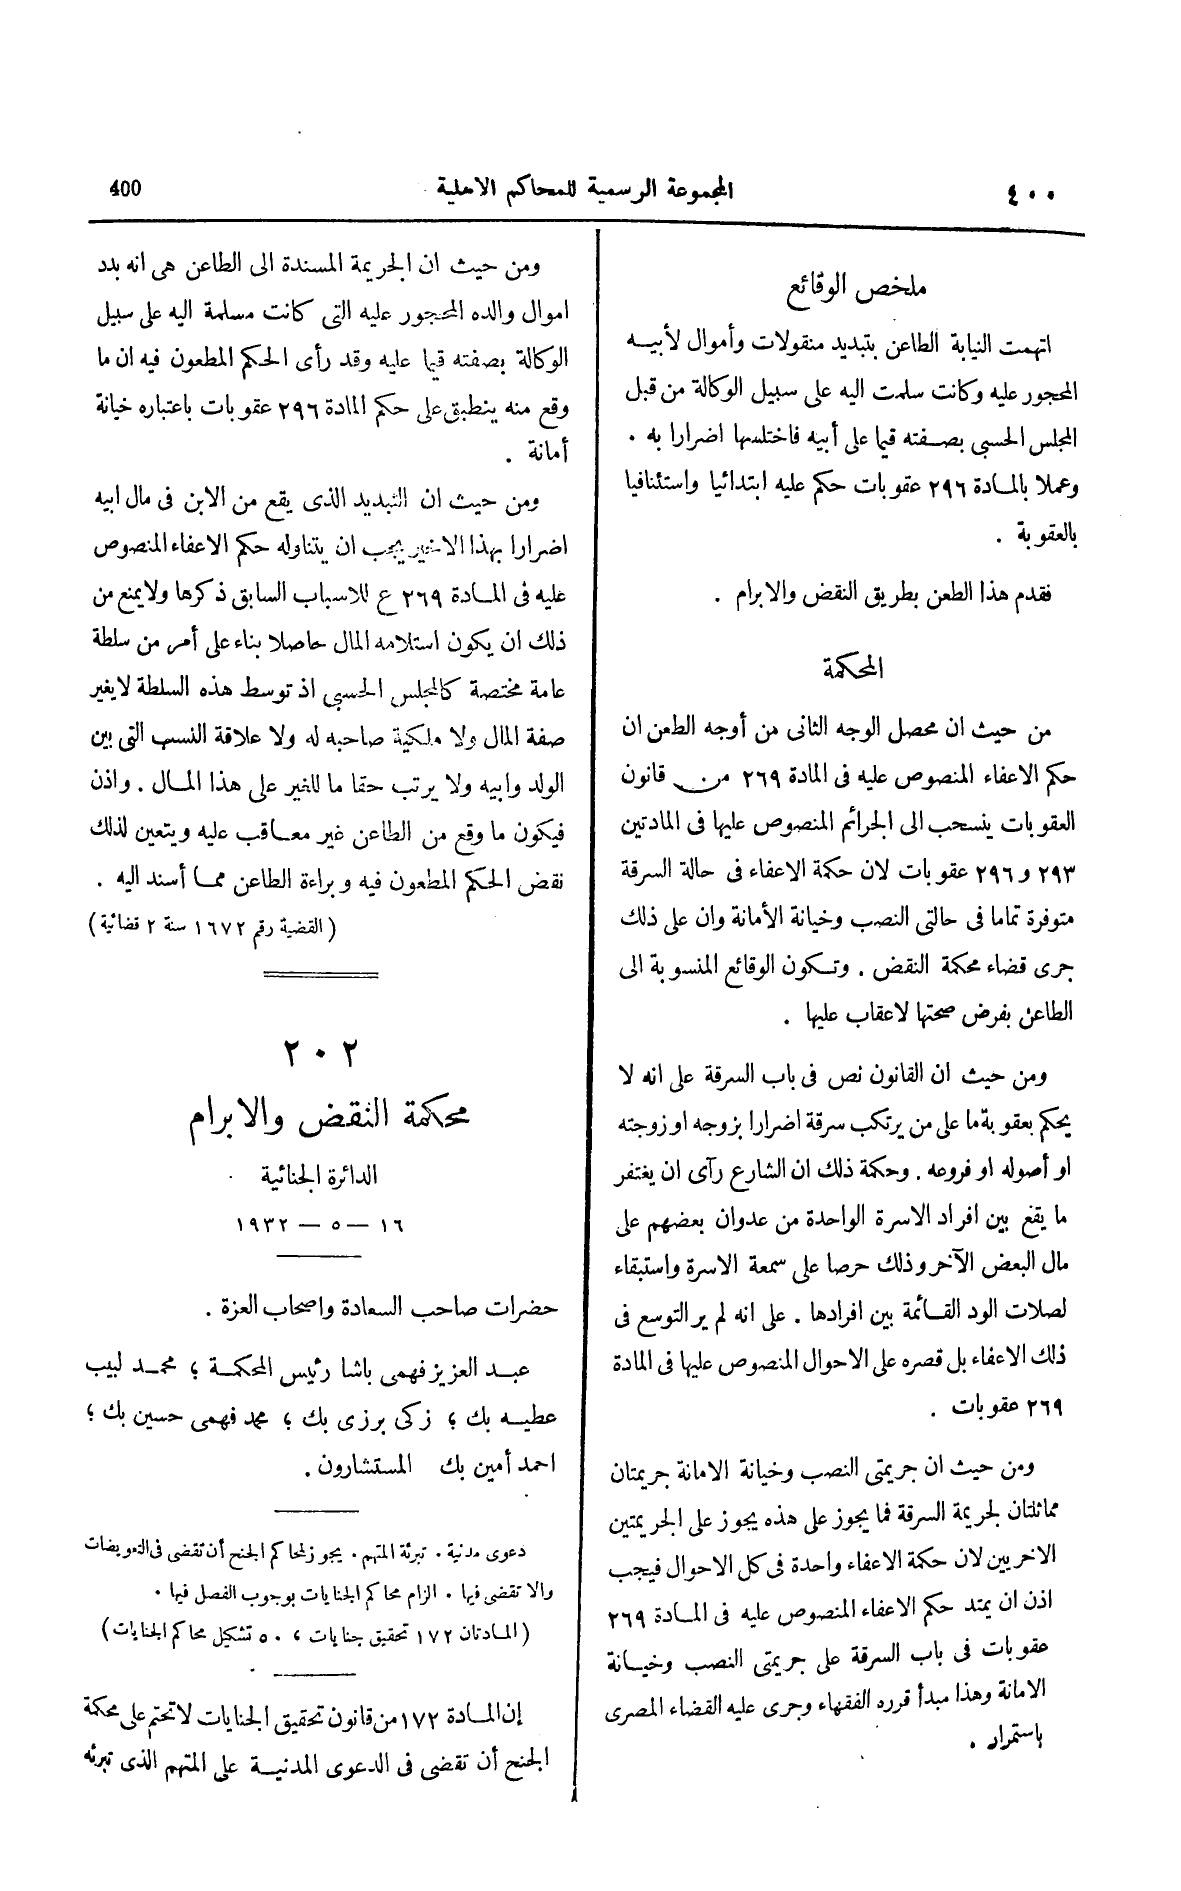 ٤٠٠ المجموعة الرسمية للمحاكم الاهلية 400
ملخص الوقائع
اتهمت النيابة الطاعن بتبديد منقولات وأموال لأبيه
المحجور عليه وكانت سلمت اليه على سبيل الوكالة من قبل
المجلس الحسبى بصفته قيما على أبيه فاختلسها اضرارا به .
وعملا بالمادة ٢٩٦ عقوبات حكم عليه ابتدائيا واستئنافيا
بالعقوبة .
فقدم هذا الطعن بطريق النقض والابرام .
المحكمة
من حيث ان محصل الوجه الثانى من أوجه الطعن ان
حكم الاعفاء المنصوص عليه فى المادة ٢٦٩ من قانون
العقوبات ينسحب الى الجرائم المنصوص عليها فى المادتين
٢٩٣ و ٢٩٦ عقوبات لان حكمة الاعفاء فى حالة السرقة
متوفرة تماما فى حالتى النصب وخيانة الأمانة وان على ذلك
جرى قضاء محكمة النقض . وتكون الوقائع المنسوبة الى
الطاعن بفرض صحتها لاعقاب عليها .
ومن حيث ان القانون نص فى باب السرقة على انه لا
يحكم بعقوبة ما على من يرتكب سرقة اضرارا بزوجه او زوجته
او أصوله او فروعه . وحكمة ذلك ان الشارع رآى ان يغتفر
ما يقع بين افراد الاسرة الواحدة من عدوان بعضهم على
مال البعض الآخر وذلك حرصا على سمعة الاسرة واستبقاء
لصلات الود القائمة بين افرادها . على انه لم ير التوسع فى
ذلك الاعفاء بل قصره على الاحوال المنصوص عليها فى المادة
٢٦٩ عقوبات .
ومن حيث ان جريمتى النصب وخيانة الامانة جريمتان
مماثلتان لجريمة السرقة فما يجوز على هذه يجوز على الجريمتين
الاخريين لان حكمة الاعفاء واحدة فى كل الاحوال فيجب
اذن ان يمتد حكم الاعفاء المنصوص عليه فى المادة ٢٦٩
عقوبات فى باب السرقة على جريمتى النصب وخيانة
الامانة وهذا مبدأ قرره الفقهاء وجرى عليه القضاء المصرى
باستمرار .
ومن حيث ان الجريمة المسندة الى الطاعن هى انه بدد
اموال والده المحجور عليه التى كانت مسلمة اليه على سبيل
الوكالة بصفته قيما عليه وقد رأى الحكم المطعون فيه ان ما
وقع منه ينطبق على حكم المادة ٢٩٦ عقوبات باعتباره خيانة
أمانة .
ومن حيث ان التبديد الذى يقع من الابن فى مال ابيه
اضرارا بهذا الاخير يجب ان يتناوله حكم الاعفاء المنصوص
عليه فى المادة ٢٦٩ ع للاسباب السابق ذكرها ولا يمنع من
ذلك ان يكون استلامه المال حاصلا بناء على أمر من سلطة
عامة مختصة كالمجلس الحسبى اذ توسط هذه السلطة لايغير
صفة المال ولا ملكية صاحبه له ولا علاقة النسب التى بين
الولد وابيه ولا يرتب حقا ما للغير على هذا المال . واذن
فيكون ما وقع من الطاعن غير معاقب عليه ويتعين لذلك
نقض الحكم المطعون فيه وبراءة الطاعن مما أسند اليه .
( القضية رقم ١٦٧٢ سنة ٢ قضائية )
٢٠٢
محكمة النقض والابرام
الدائرة الجنائية
١٦ – ٥ – ١٩٣٢
حضرات صاحب السعادة واصحاب العزة .
عبد العزيز فهمى باشا رئيس المحكمة ؛ محمد لبيب
عطيه بك ؛ زكى برزى بك ؛ محمد فهمى حسين بك ؛
احمد أمين بك المستشارون .
دعوى مدنية . تبرئة المتهم . يجوز لمحاكم الجنح أن تقضى فى التعويضات
والا تقضى فيها . الزام محاكم الجنايات بوجوب الفصل فيها .
( المادتان ١٧٢ تحقيق جنايات ، ٥٠ تشكيل محاكم الجنايات )
إن المادة ١٧٢ من قانون تحقيق الجنايات لا تحتم على محكمة
الجنح أن تقضى فى الدعوى المدنية على المتهم الذى تبرئه